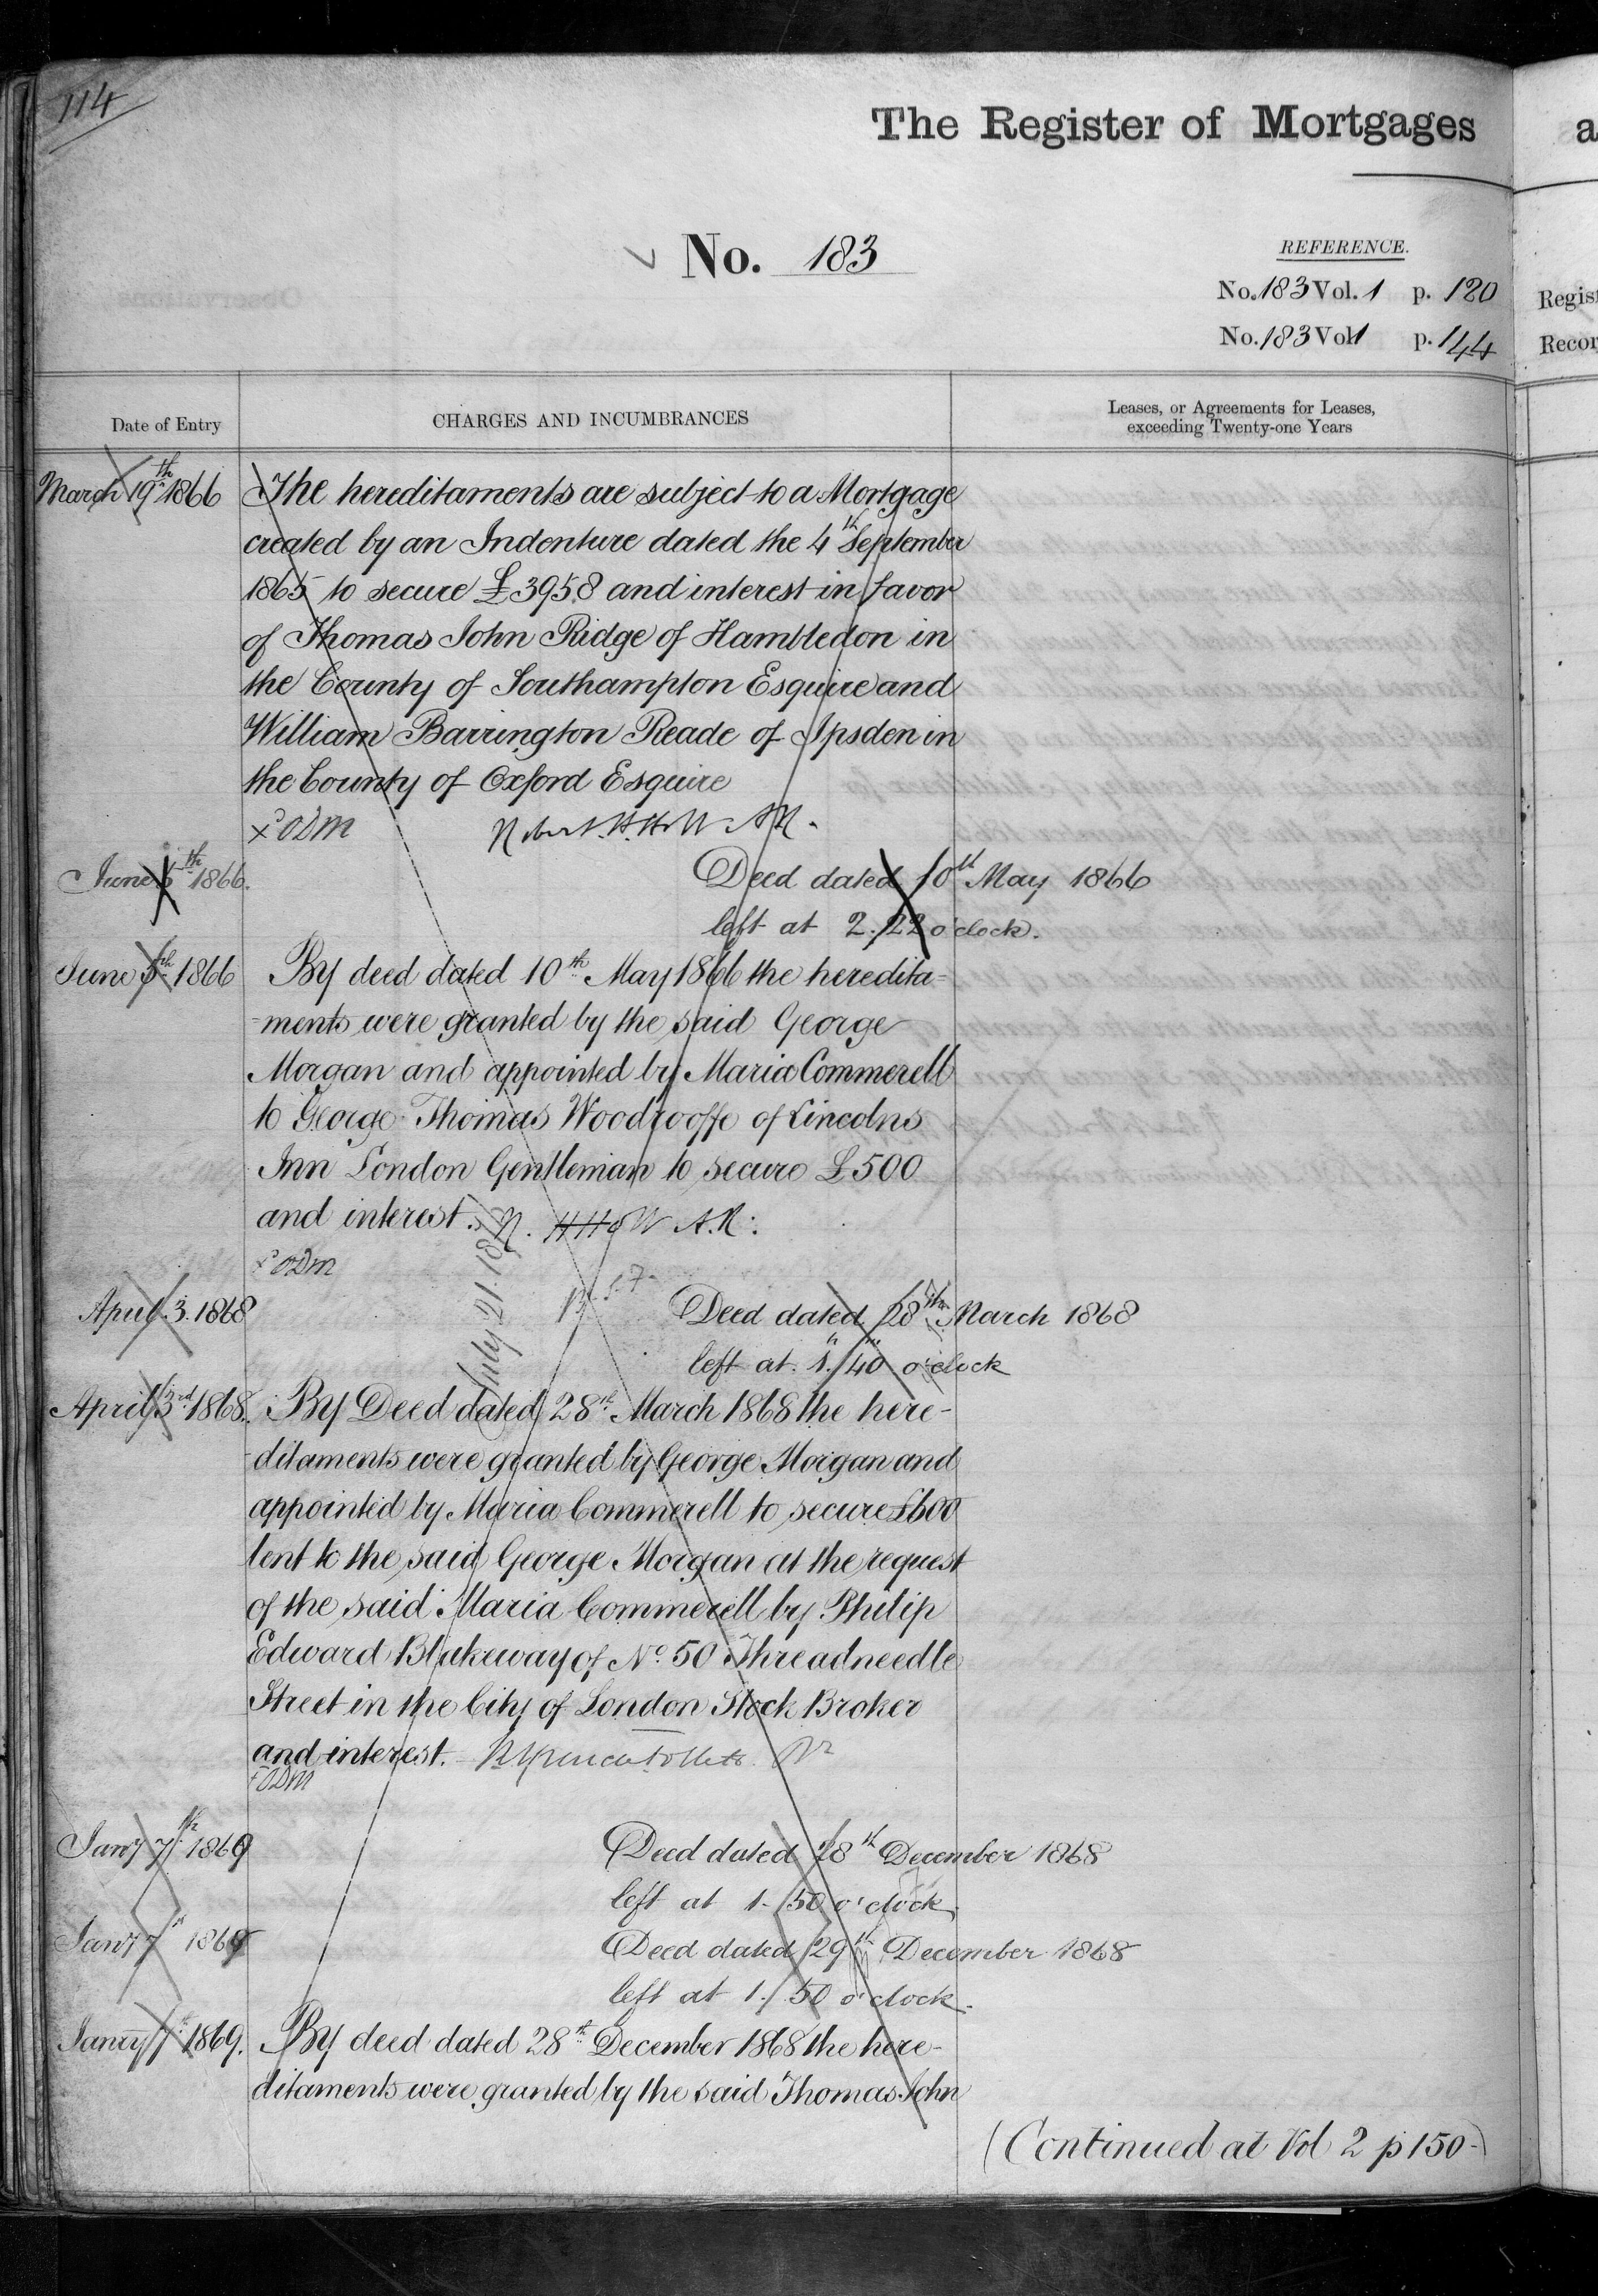 114
The Register of Mortgages
No. 183
REFERENCE.
No. 183 Vol. 1 p. 120
No. 183 Vol 1 p. 144
Regis
Recor
Date of Entry
CHARGES AND INCUMBRANCES
Leases, or Agreements for Leases,
exceeding Twenty-one Years
March 19th 1866 The hereditaments are subject to a Mortgage
created by an Indenture dated the 4th September
1865 to secure £3958 and interest in favor
of Thomas John Ridge of Hambledon in
the County of Southampton Esquire and
William Barrington Reade of Ipsden in
the County of Oxford Esquire
Robert H. Holt A.R.
June 5th 1866. Deed dated 10th May 1866
left at 2.22 o'clock.
June 5th 1866 By deed dated 10th May 1866 the heredita-
-ments were granted by the said George
Morgan and appointed by Maria Commerell
to George Thomas Woodrooffe of Lincolns
Inn London Gentleman to secure £500
and interest. A.R.
July 21.
April 3. 1868 Deed dated 28th March 1868
left at 1.40 o'clock
April 3rd 1868. By Deed dated 28th March 1868 the here-
-ditaments were granted by George Morgan and
appointed by Maria Commerell to secure £600
lent to the said George Morgan at the request
of the said Maria Commerell by Philip
Edward Blakeway of No. 50 Threadneedle
Street in the City of London Stock Broker
and interest.
Jany 7th 1869 Deed dated 28th December 1868
left at 1.50 o'clock
Jany 7th 1869 Deed dated 29th December 1868
left at 1.50 o'clock.
Jany 7th 1869. By deed dated 28th December 1868 the here-
ditaments were granted by the said Thomas John
(Continued at Vol 2 p 150-)